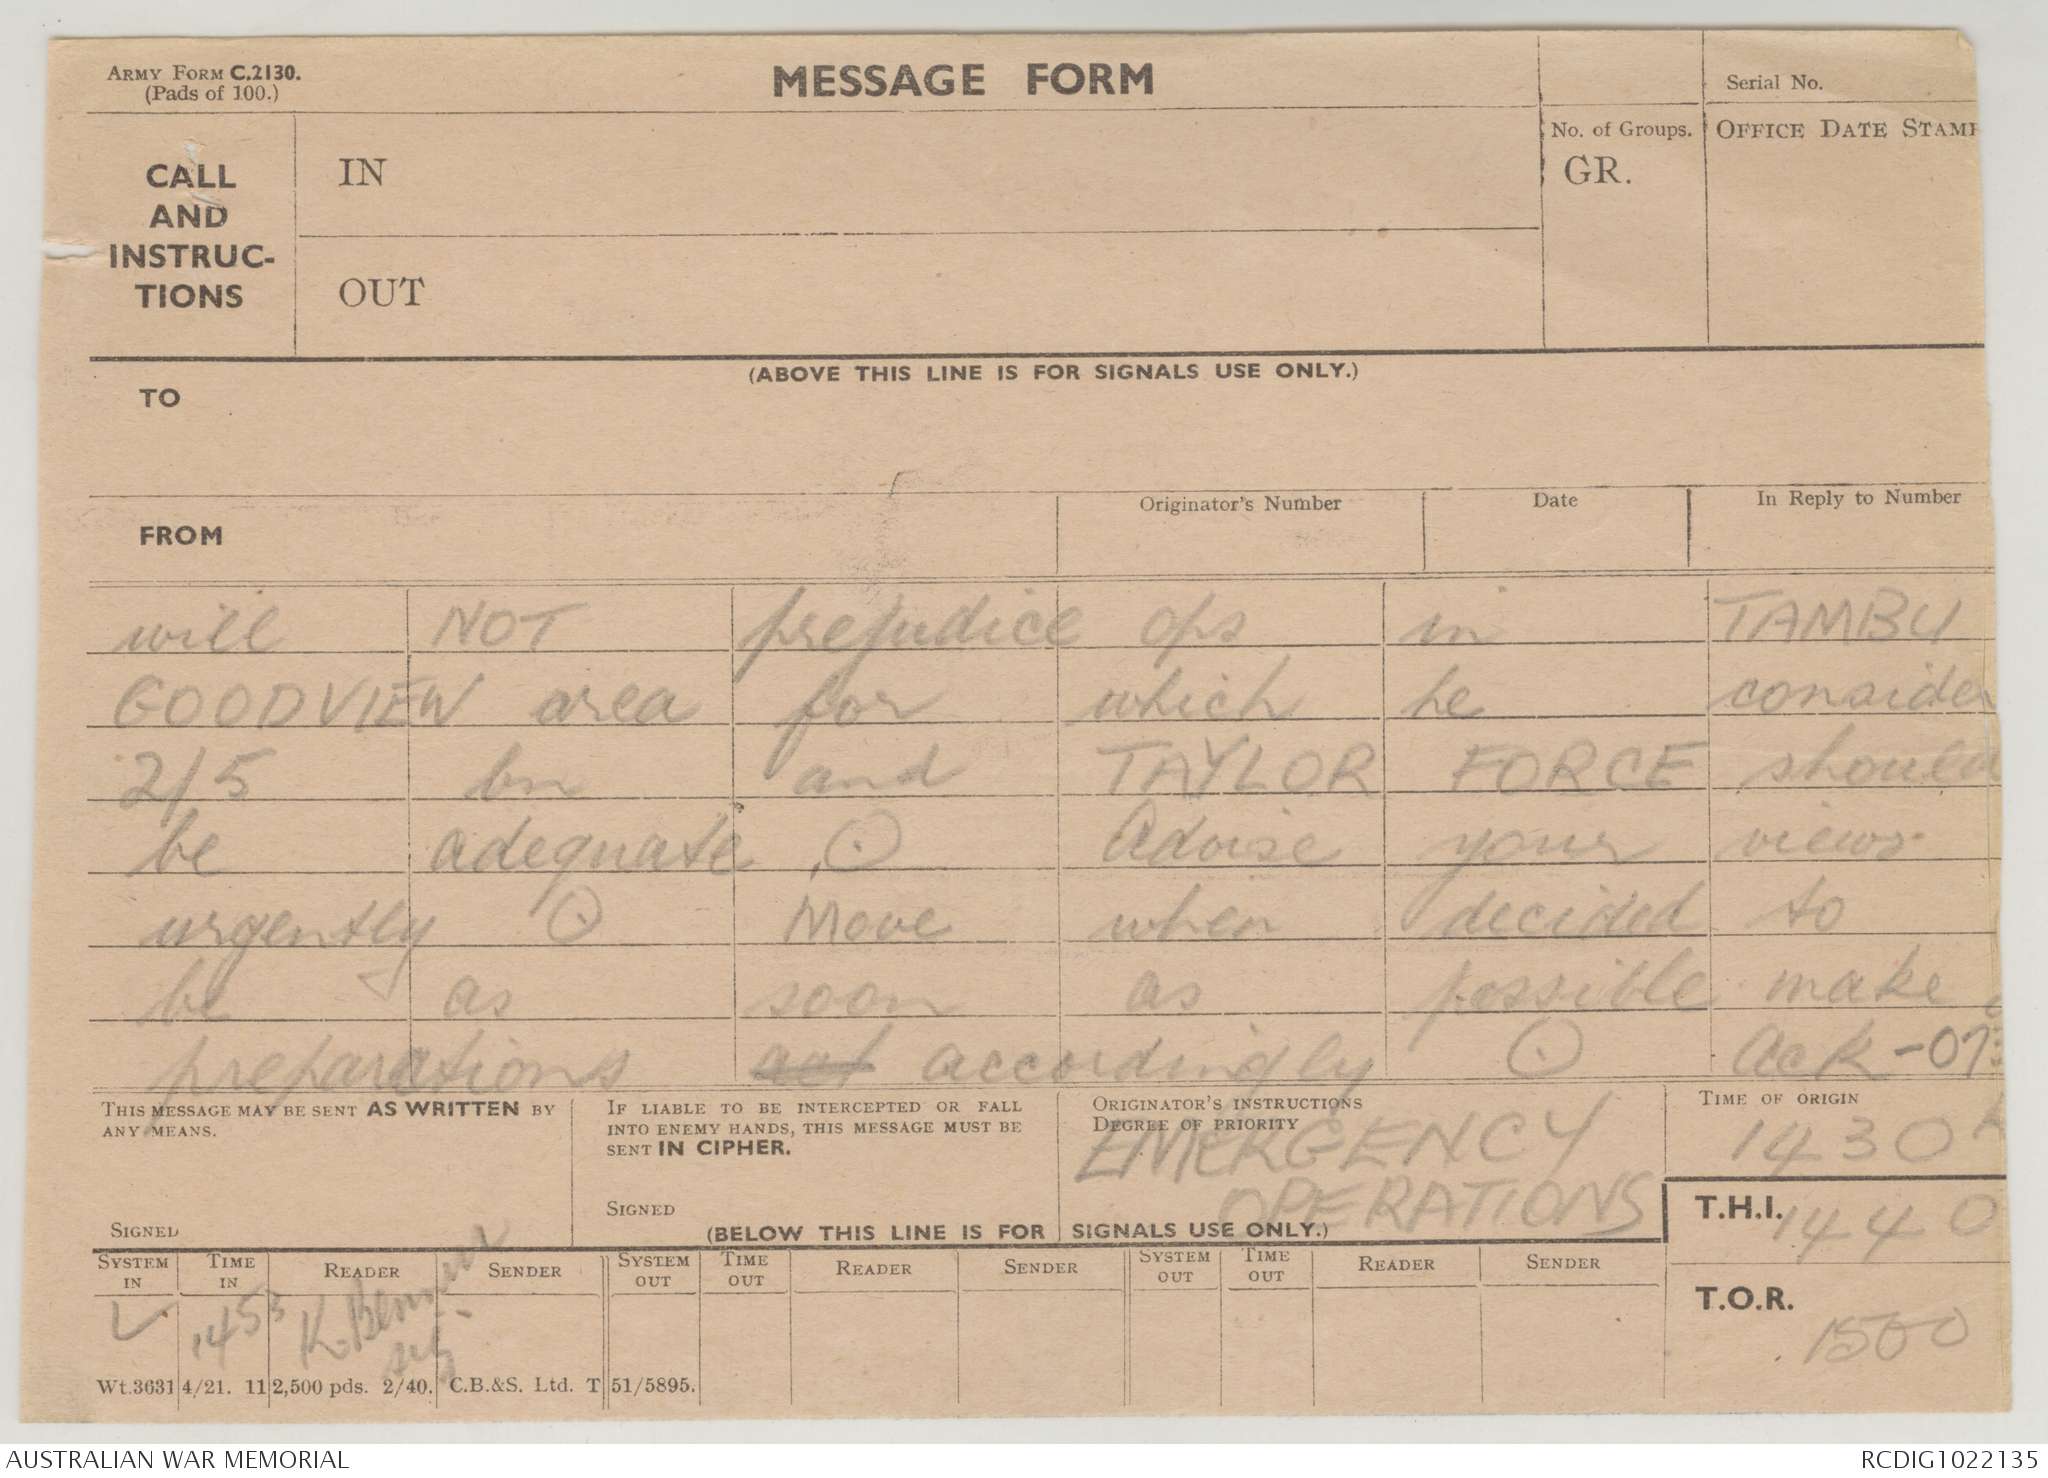 ARMY FORM C.2130.
(Pads of 100.)
MESSAGE FORM
Serial No.
CALL
AND
INSTRUC-
TIONS
IN
OUT
No. of Groups.
GR.
OFFICE DATE STAMP
(ABOVE THIS LINE IS FOR SIGNALS USE ONLY.)
TO
FROM
Originator's Number
Date
In Reply to Number
will NOT prejudice ops in TAMBU
GOODVIEW area for which he consider
2/5 bn and TAYLOR FORCE should
be adequate ⊙ Advise your views
urgently ⊙ Move when decided to
be as soon as possible make
preparations act accordingly ⊙ Ack -07
THIS MESSAGE MAY BE SENT AS WRITTEN BY
ANY MEANS.
SIGNED
IF LIABLE TO BE INTERCEPTED OR FALL
INTO ENEMY HANDS, THIS MESSAGE MUST BE
SENT IN CIPHER.
SIGNED
ORIGINATOR'S INSTRUCTIONS
DEGREE OF PRIORITY
EMERGENCY
OPERATIONS
TIME OF ORIGIN
1430
T.H.I. 1440
T.O.R.
1500
(BELOW THIS LINE IS FOR SIGNALS USE ONLY.)
SYSTEM IN
TIME IN
READER
SENDER
SYSTEM OUT
TIME OUT
READER
SENDER
SYSTEM OUT
TIME OUT
READER
SENDER
1453
Wt.3631 4/21. 11 2,500 pds. 2/40. C.B.&S. Ltd. T 51/5895.
AUSTRALIAN WAR MEMORIAL
RCDIG1022135